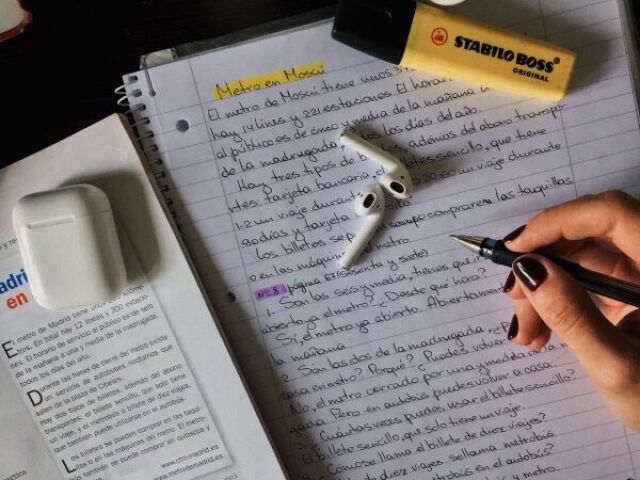 STABILO BOSS®
ORIGINAL
Metro en Moscú
El metro de Moscú tiene unos
hay 14 lines y 221 estaciones. El horar
al público es de cinco y media de la mañana a
de la madrugada los días del año.
Hay tres tipos de además del abono transpo
rtes: tarjeta bancaria, el billetes sensillo, que tiene
1-2 un viaje durante 30-60 un viaje durante
90 días y tarjeta
los billetes se comprar en las taquillas
o en las máquin metro.
Nº 8 página 67 (sesenta y siete)
1. Son las seis y media, tienes que
abierto ya el metro? ¿Desde que hora?
Sí, el metro ya abierto. Abiertament
la mañana
2. Son las dos de la madrugada,
casa en metro? Porqué? ¿Puedes volver
No, el metro cerrado por una y media de la
gada. Pero en autobús puedes volver a casa.
¿Cuántas veces puedes usar el billete sencillo?
El billete sencillo, que solo tiene un viaje.
Cómo se llama el billete de diez viajes?
de diez viajes se llama metrobús
metrobús en el autobús?
y metro.
en
El metro de Madrid tiene
tros. En total hay 12 líneas y 300 estacio-
nes. El horario de servicio al público es de seis
de la mañana a una y media de la madrugada,
todos los días del año.
Durante las horas de cierre del metro existe
un servicio de autobuses nocturnos que
salen de la plaza de Cibeles.
Hay dos tipos de billetes, además del abono
transportes: el billete sencillo, que solo tiene
un viaje, y el metrobús o billete de diez viajes,
que también puede utilizarse en el autobús.
Los billetes se pueden comprar en las taqui-
llas o en las máquinas del metro. El metro-
bús también se puede comprar en quioscos y
www.ctm-madrid.es
www.metromadrid.es